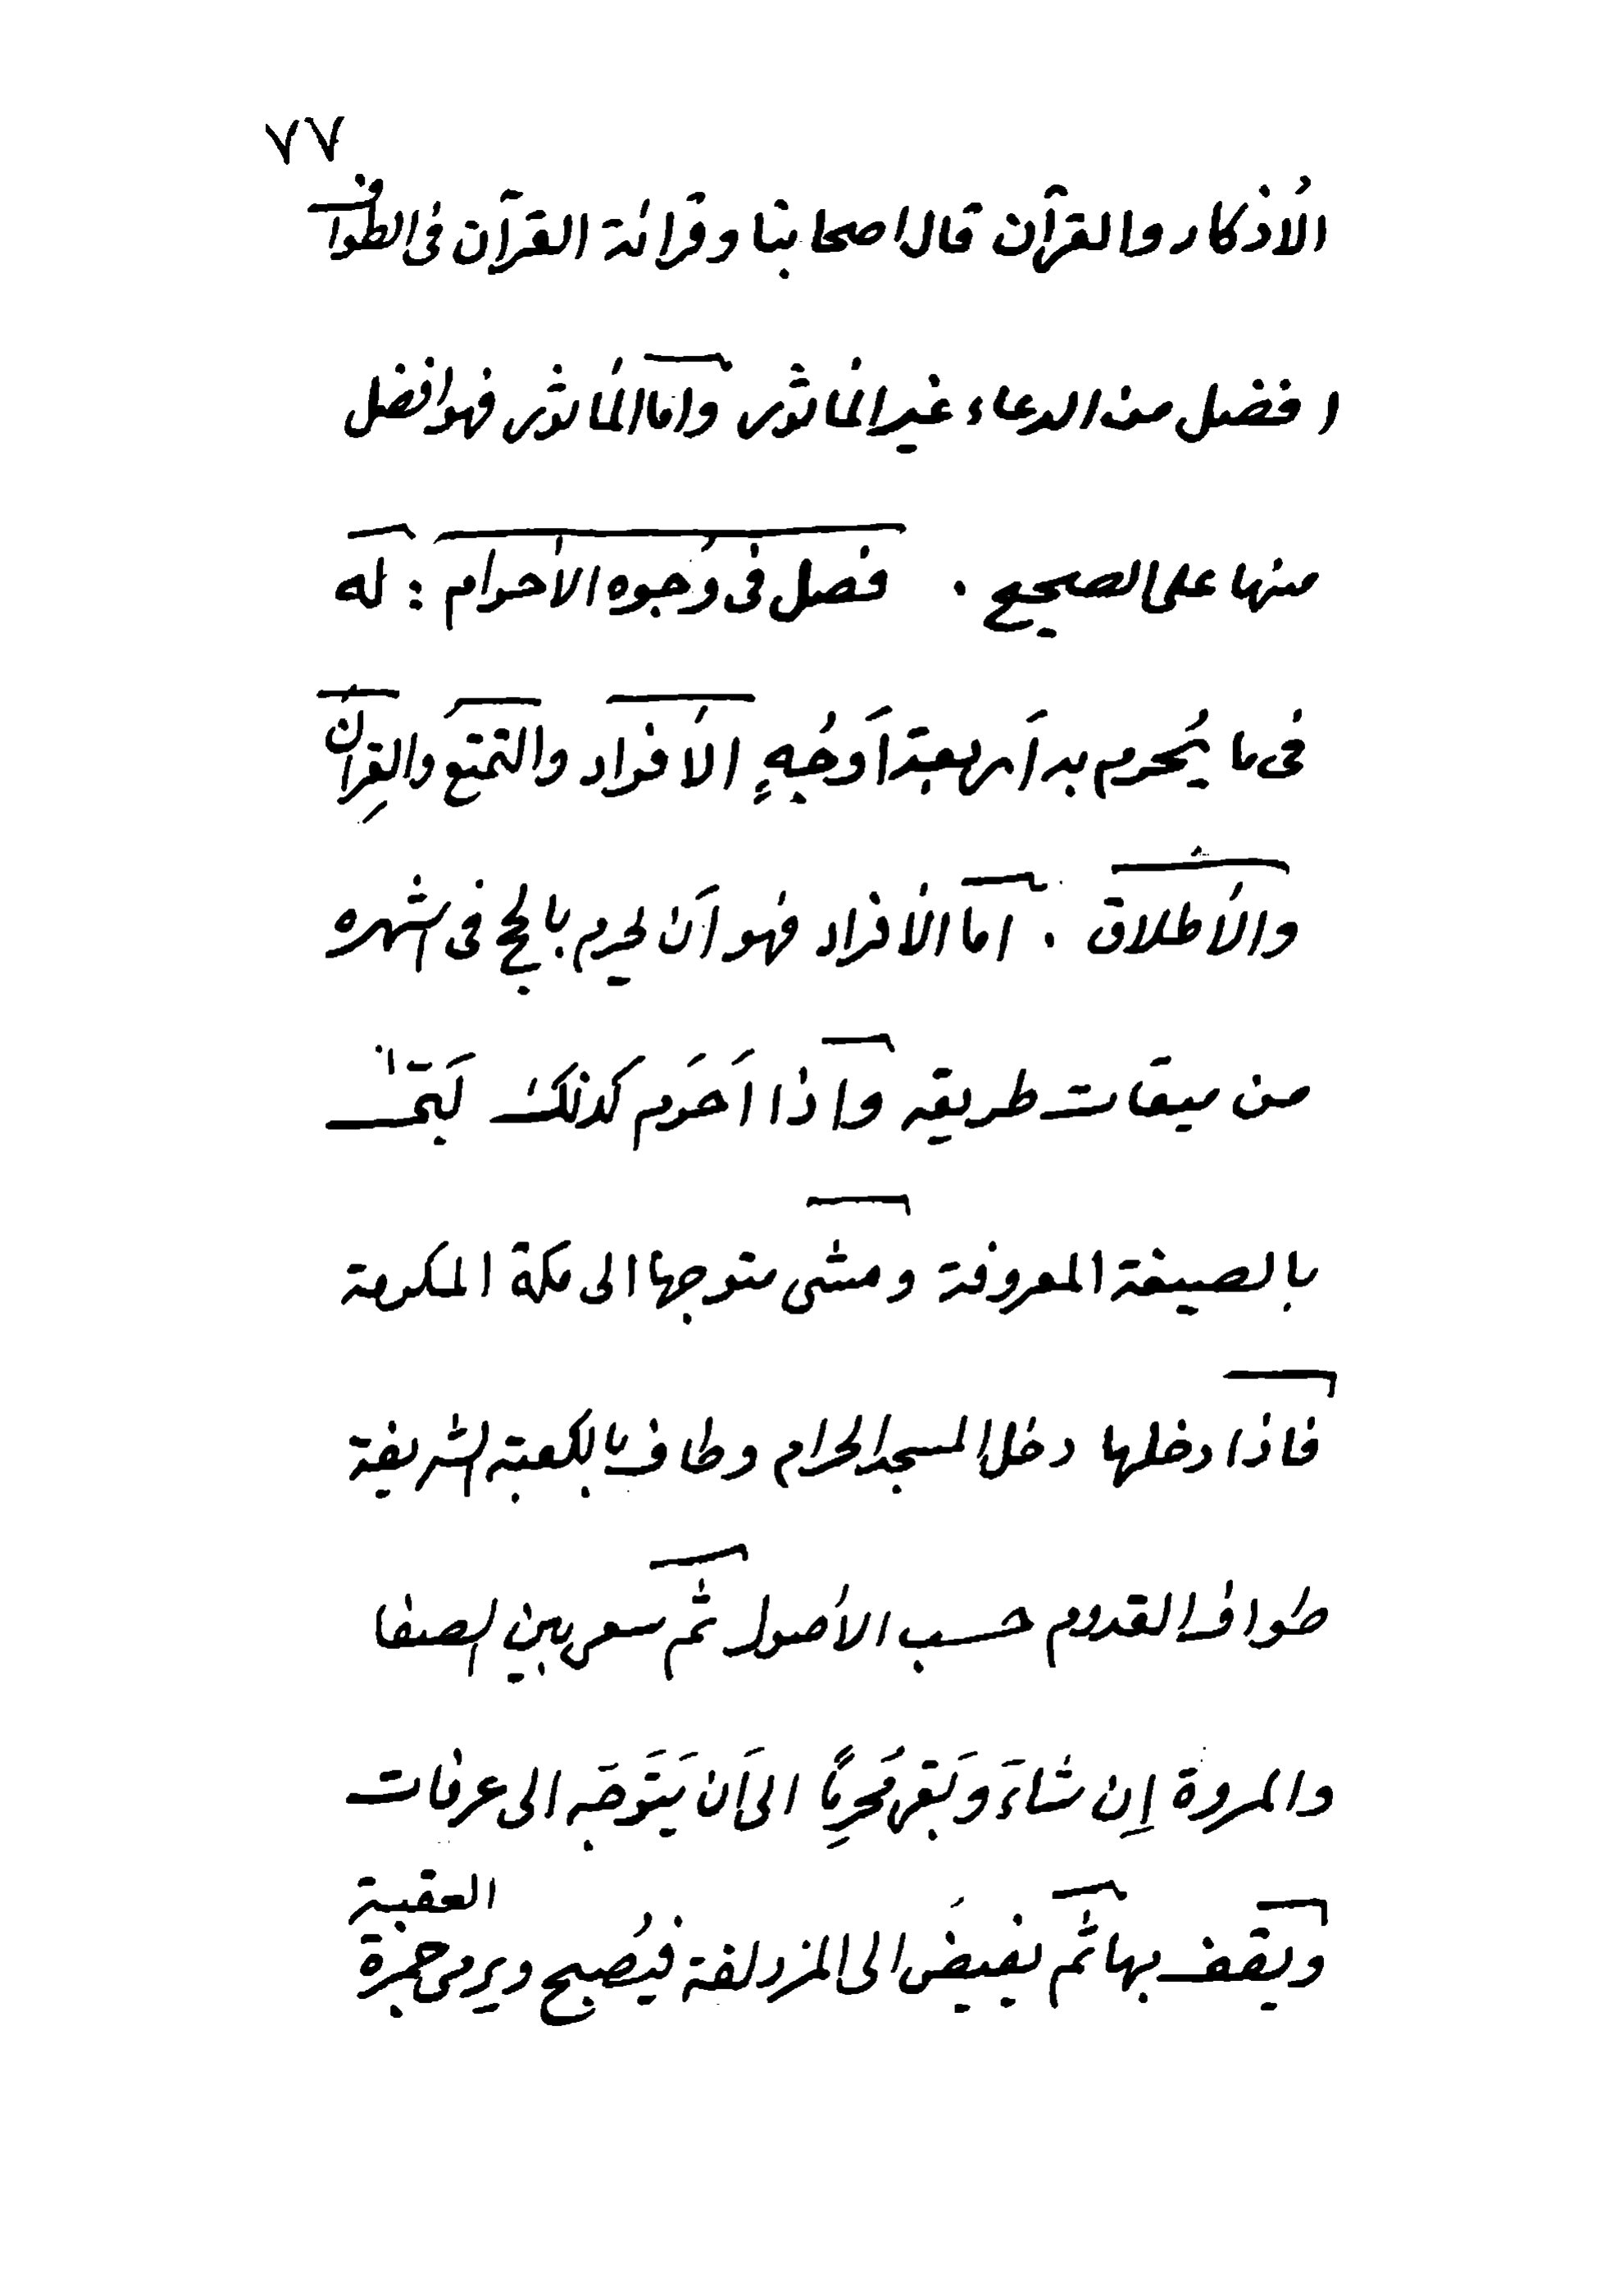 ٧٧
الأذكار والقرآن قال اصحابنا وقرائة القرآن فى الطواف
افضل من الدعاء غير المأثور واما المأثور فهو افضل
منها على الصحيح . فصل فى وُجوه الأحرام : له
فى ما يُحرم به أَربعة أَوجُهٍ الأفراد والتمتع والقِران
والأطلاق . اما الأفراد فهو أَن يحرم بالحج فى اشهره
من ميقات طريقه واذا اَحرَم كذلك لَبّى
بالصيغة المعروفة ومشى متوجها الى مكة المكرمة
فاذا دخلها دخل المسجد الحرام وطاف بالكعبة الشريفة
طواف القدوم حسب الأصول ثم سعى بين الصفا
والمروة إِن شاءَ وَبقى مُحرِمًا الى اَن يَتَوَجّه الى عرفات
ويقف بها ثم يفيضَ الى المزدلفة فيُصبح ويرمى جمرة
العقبة